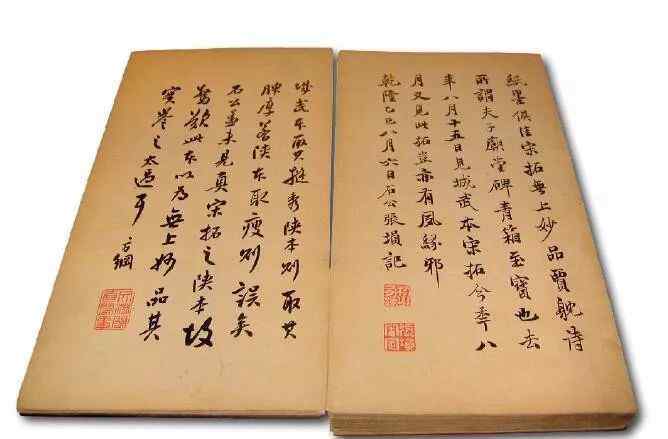 紙墨俱佳宋拓無上妙品賈躭詩
所謂夫子廟堂碑青箱至寶也去
年八月十五日見城武本宋拓今年八
月又見此拓豈亦有夙緣邪
乾隆乙巳八月六日石公張塤記
城武本取其挺秀陝本則取其
腴厚若陝本取瘦則誤矣
石公蓋未見真宋拓之陝本故
驚歎此本以為無上妙品其
實譽之太過耳
方綱